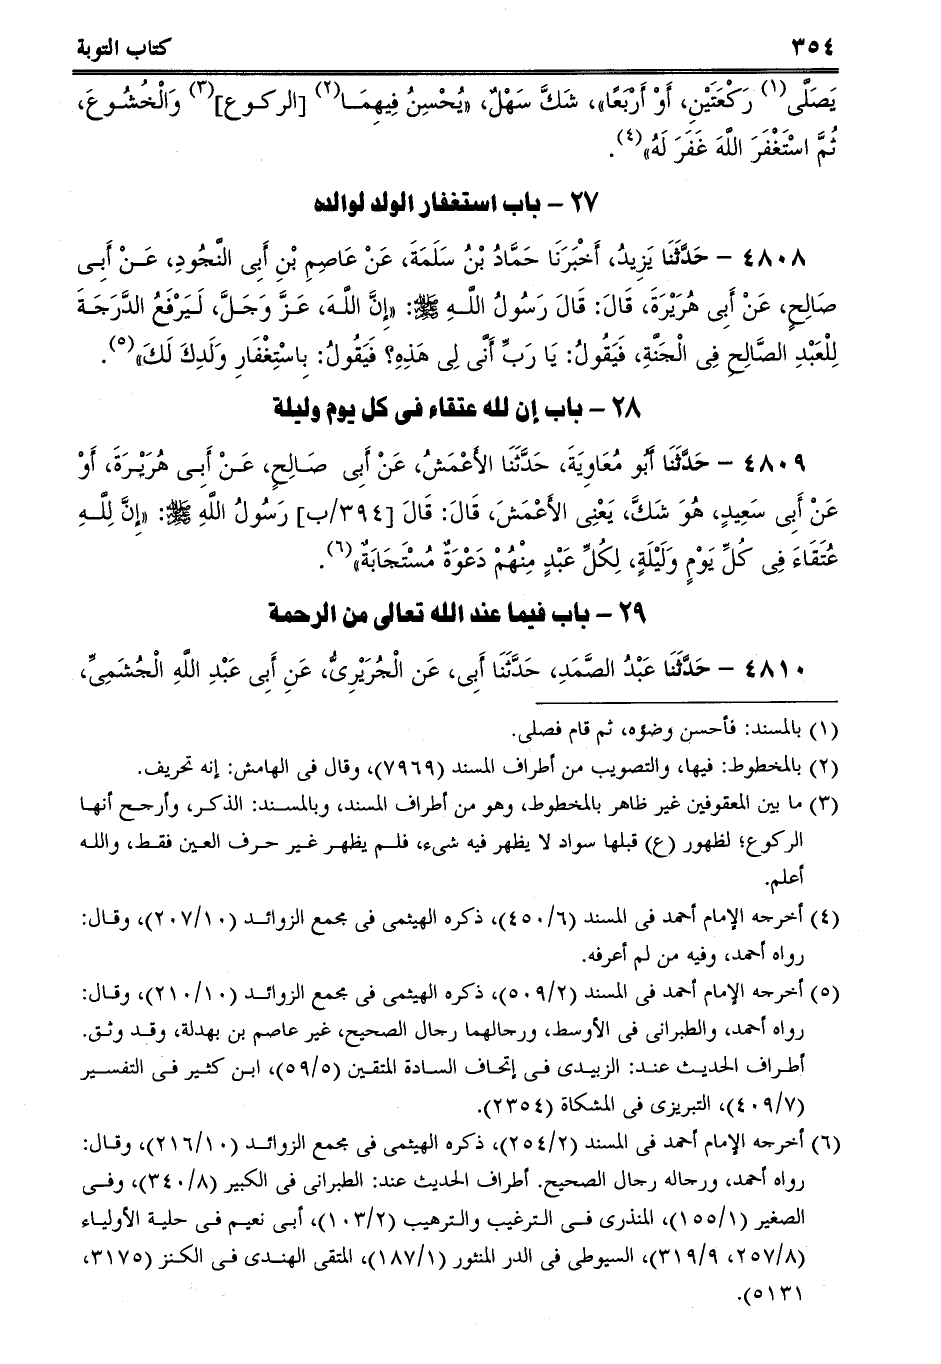 ٣٥٤ كتاب التوبة
يَصَلِّى(١) رَكْعَتَيْنِ، أَوْ أَرْبَعًا»، شَكَّ سَهْلٌ، «يُحْسِنُ فِيهِمَا(٢) [الركوع](٣) وَالْخُشُوعَ،
ثُمَّ اسْتَغْفَرَ اللَّهَ غَفَرَ لَهُ»(٤).
٢٧ – باب استغفار الولد لوالده
٤٨٠٨ – حَدَّثَنَا يَزِيدُ، أَخْبَرَنَا حَمَّادُ بْنُ سَلَمَةَ، عَنْ عَاصِمِ بْنِ أَبِى النَّجُودِ، عَنْ أَبِى
صَالِحٍ، عَنْ أَبِى هُرَيْرَةَ، قَالَ: قَالَ رَسُولُ اللَّهِ ﷺ: «إِنَّ اللَّهَ، عَزَّ وَجَلَّ، لَيَرْفَعُ الدَّرَجَةَ
لِلْعَبْدِ الصَّالِحِ فِى الْجَنَّةِ، فَيَقُولُ: يَا رَبِّ أَنَّى لِى هَذِهِ؟ فَيَقُولُ: بِاسْتِغْفَارِ وَلَدِكَ لَكَ»(٥).
٢٨ – باب إن لله عتقاء فى كل يوم وليلة
٤٨٠٩ – حَدَّثَنَا أَبُو مُعَاوِيَةَ، حَدَّثَنَا الأَعْمَشُ، عَنْ أَبِى صَالِحٍ، عَنْ أَبِى هُرَيْرَةَ، أَوْ
عَنْ أَبِى سَعِيدٍ، هُوَ شَكَّ، يَعْنِى الأَعْمَشَ، قَالَ: قَالَ [٣٩٤/ب] رَسُولُ اللَّهِ ﷺ: «إِنَّ لِلَّهِ
عُتَقَاءَ فِى كُلِّ يَوْمٍ وَلَيْلَةٍ، لِكُلِّ عَبْدٍ مِنْهُمْ دَعْوَةٌ مُسْتَجَابَةٌ»(٦).
٢٩ – باب فيما عند الله تعالى من الرحمة
٤٨١٠ – حَدَّثَنَا عَبْدُ الصَّمَدِ، حَدَّثَنَا أَبِى، عَنِ الْجُرَيْرِىُّ، عَنِ أَبِى عَبْدِ اللَّهِ الْجُشَمِىِّ،
(١) بالمسند: فأحسن وضؤه، ثم قام فصلى.
(٢) بالمخطوط: فيها، والتصويب من أطراف المسند (٧٩٦٩)، وقال فى الهامش: إنه تحريف.
(٣) ما بين المعقوفين غير ظاهر بالمخطوط، وهو من أطراف المسند، وبالمسند: الذكر، وأرجح أنها
الركوع؛ لظهور (ع) قبلها سواد لا يظهر فيه شىء، فلم يظهر غير حرف العين فقط، والله
أعلم.
(٤) أخرجه الإمام أحمد فى المسند (٤٥٠/٦)، ذكره الهيثمى فى مجمع الزوائد (٢٠٧/١٠)، وقال:
رواه أحمد، وفيه من لم أعرفه.
(٥) أخرجه الإمام أحمد فى المسند (٥٠٩/٢)، ذكره الهيثمى فى مجمع الزوائد (٢١٠/١٠)، وقال:
رواه أحمد، والطبرانى فى الأوسط، ورحالهما رجال الصحيح، غير عاصم بن بهدلة، وقد وثق.
أطراف الحديث عند: الزبيدى فى إتحاف السادة المتقين (٥٩/٥)، ابن كثير فى التفسير
(٤٠٩/٧)، التبريزى فى المشكاة (٢٣٥٤).
(٦) أخرجه الإمام أحمد فى المسند (٢٥٤/٢)، ذكره الهيثمى فى مجمع الزوائد (٢١٦/١٠)، وقال:
رواه أحمد، ورجاله رجال الصحيح. أطراف الحديث عند: الطبرانى فى الكبير (٣٤٠/٨)، وفى
الصغير (١٥٥/١)، المنذرى فى الترغيب والترهيب (١٠٣/٢)، أبى نعيم فى حلية الأولياء
(٢٥٧/٨، ٣١٩/٩)، السيوطى فى الدر المنثور (١٨٧/١)، المتقى الهندى فى الكنز (٣١٧٥،
٥١٣١).